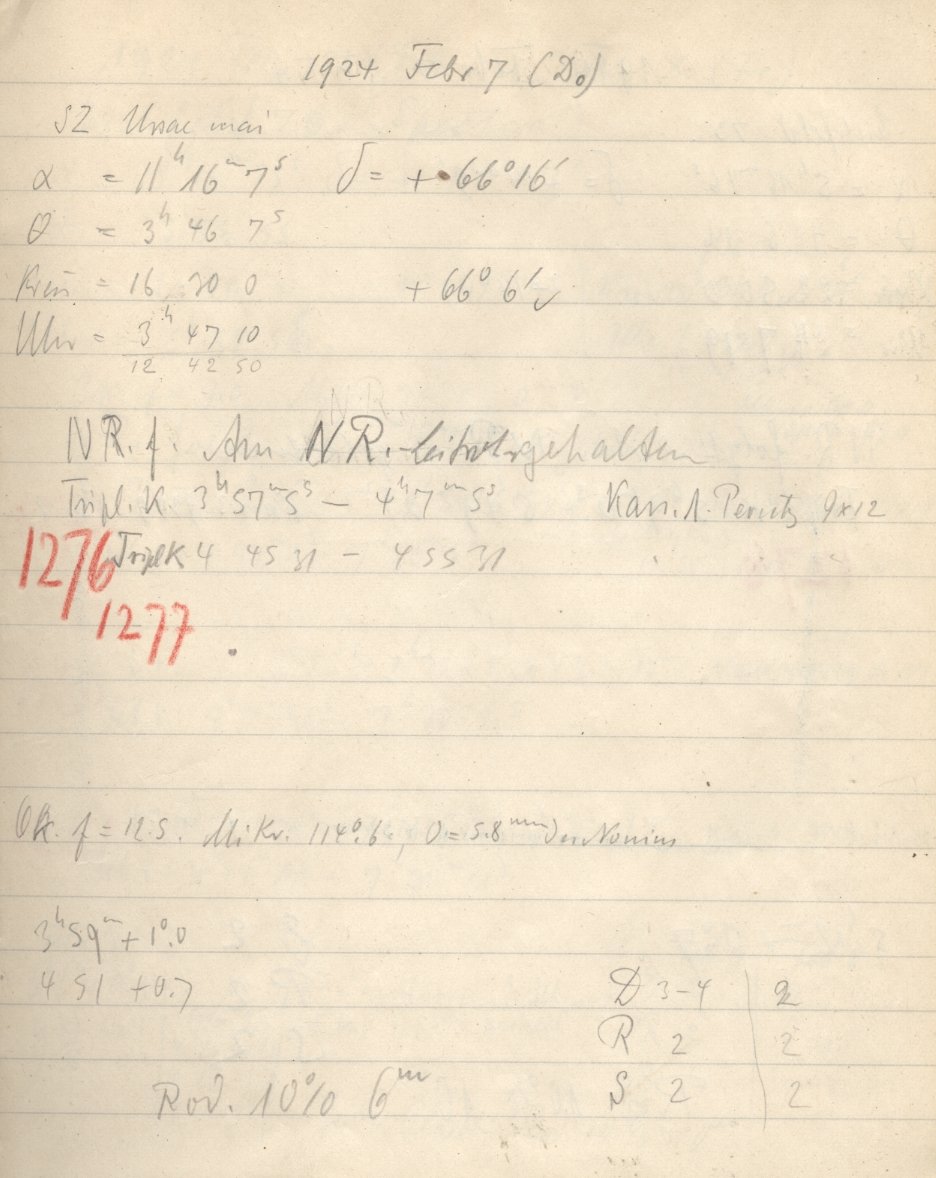 1924 Febr 7 (Do)
SZ Ursae mai
α = 11ʰ 16ᵐ 7ˢ δ = + 66° 16′
θ = 3ʰ 46 7ˢ
= 16 30 0 + 66° 6′
Uhr = 3ʰ 47 10
12 42 50
NR. f. Am NR. Leitrohr gehalten
Tripl. K. 3ʰ 57ᵐ 5ˢ — 4ʰ 7ᵐ 5ˢ Kass. 1. Perutz 9x12
1276 Tripl K 4 45 31 — 4 55 31 " "
1277
Ok. f = 12.5. Mikr. 114°.6, 0 = 5.8ᵐᵐ Nonius
3ʰ 59ᵐ + 1°.0
4 51 + 0.7
D 3-4 | 2
R 2 | 2
S 2 | 2
Rod. 10% 6ᵐ